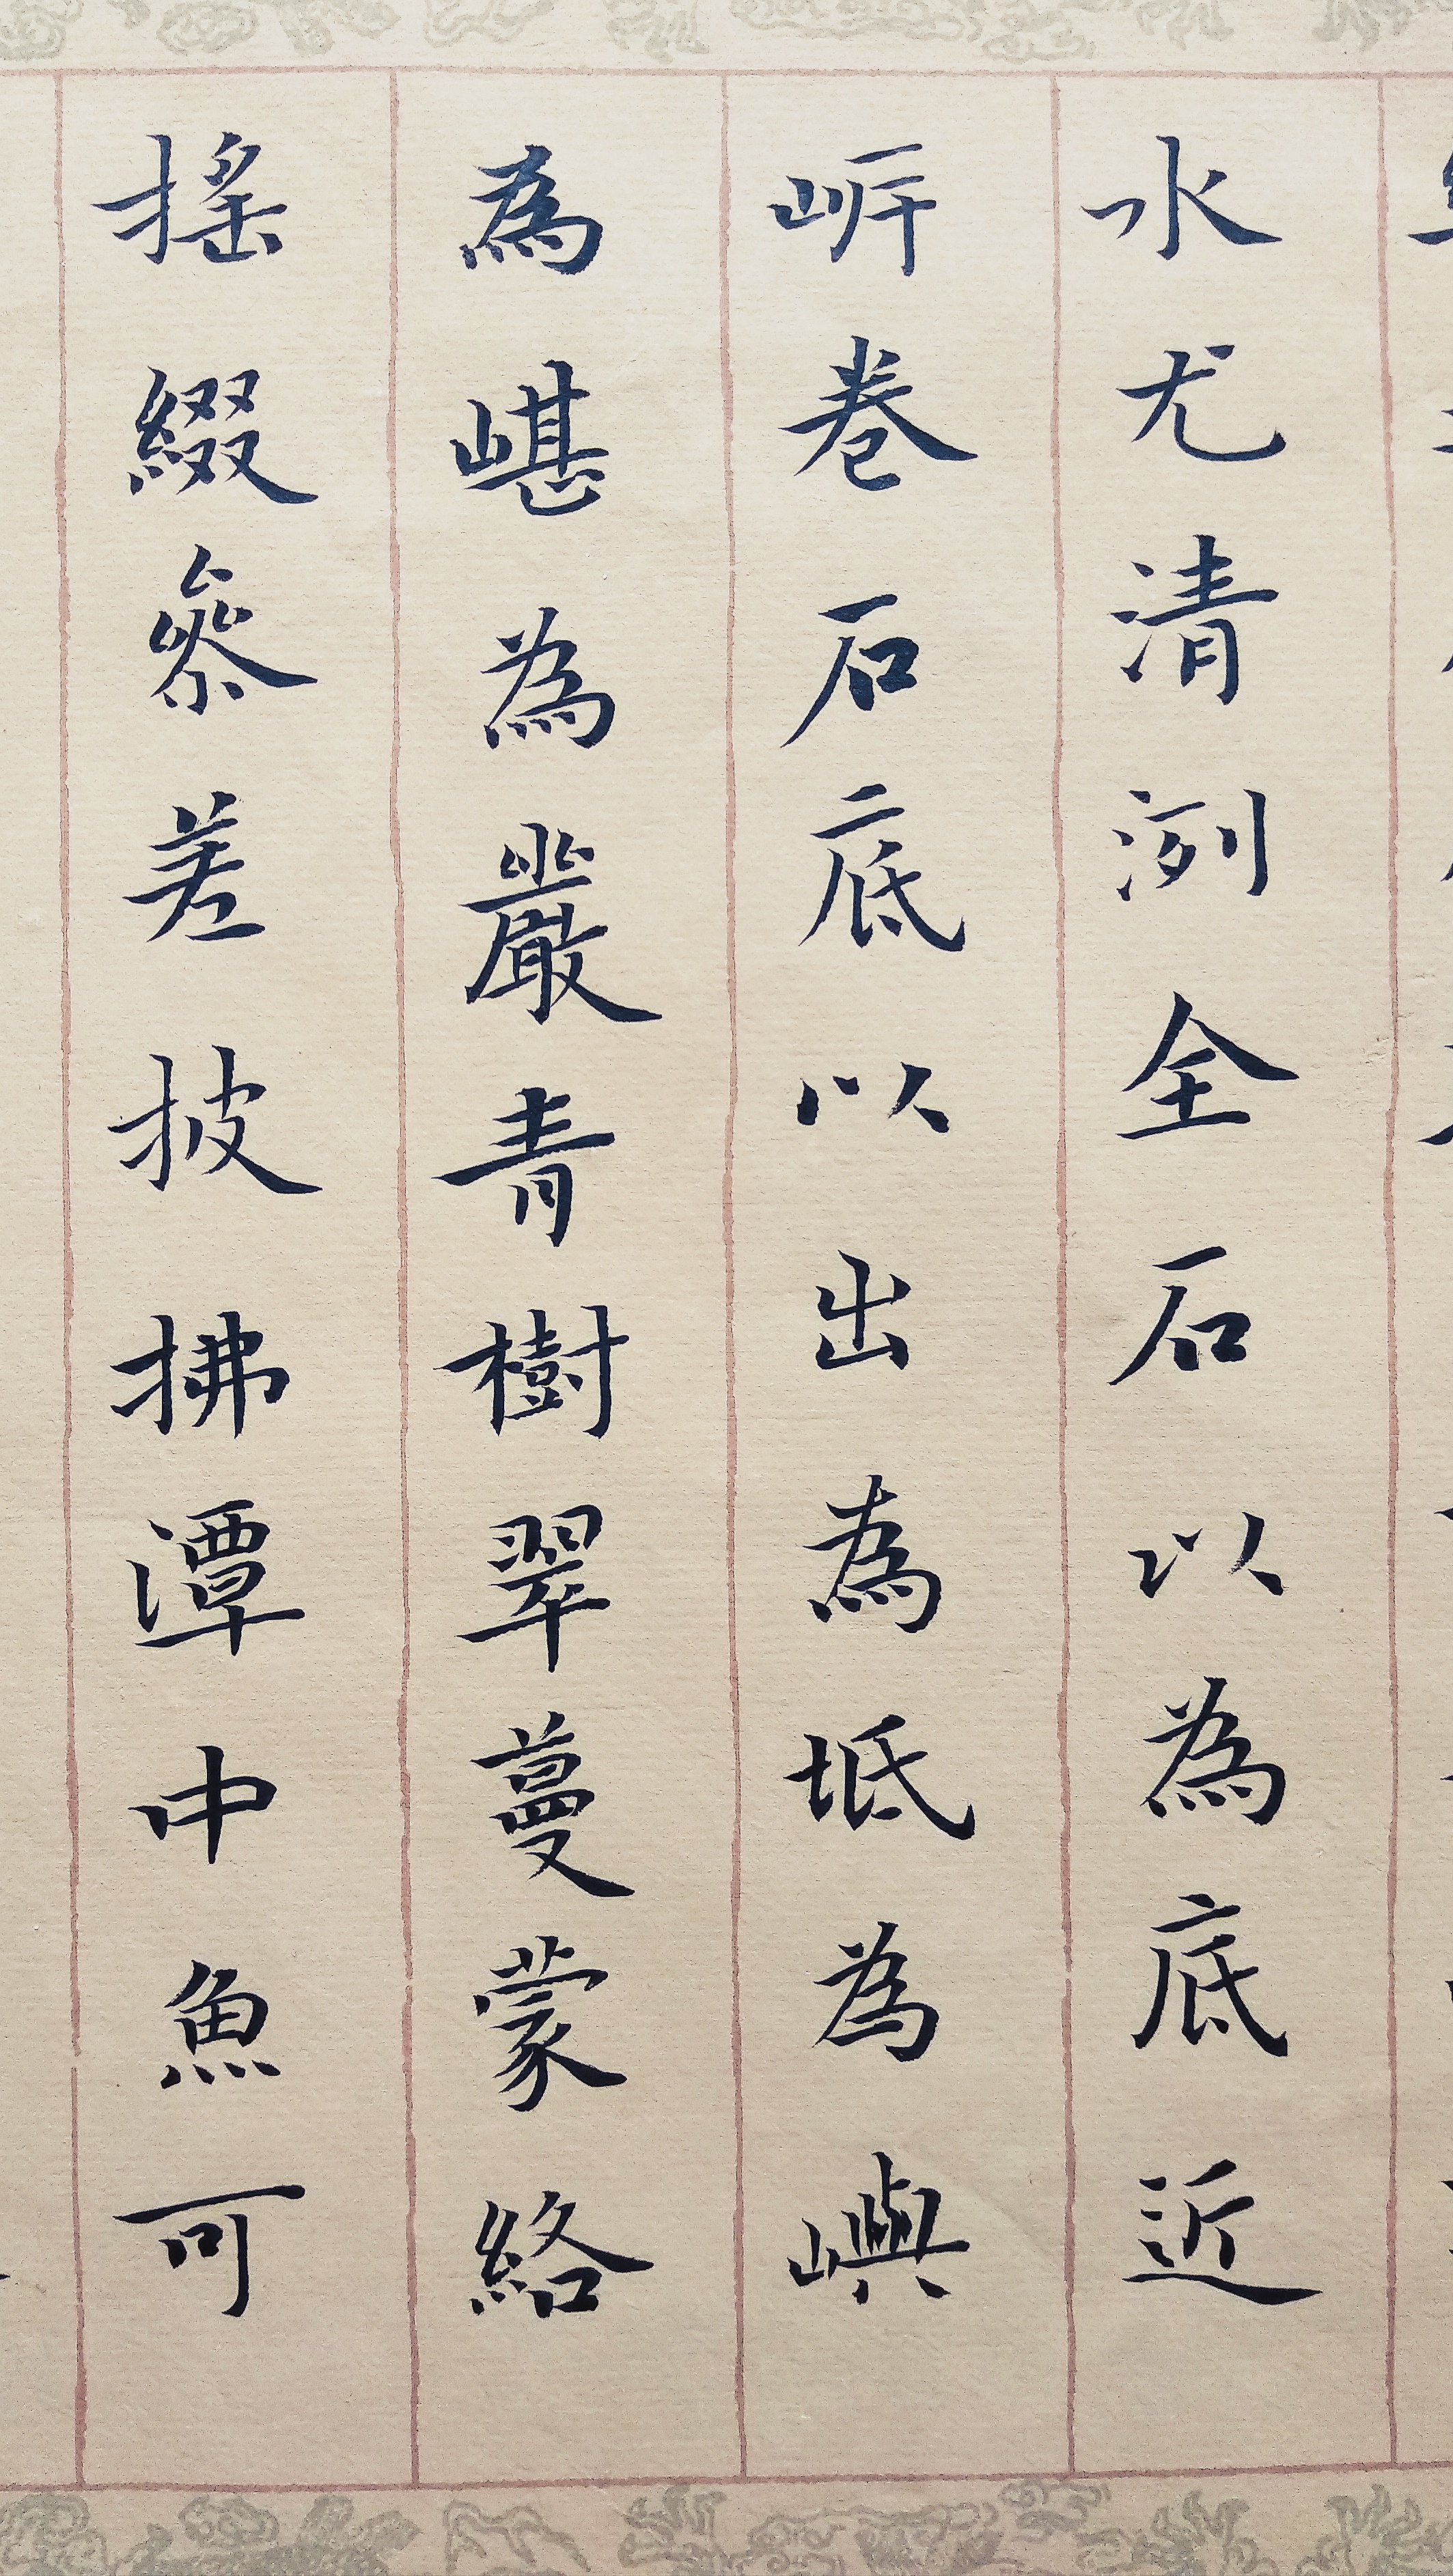 水尤清洌全石以為底近
岸卷石底以出為坻為嶼
為嵁為巖青樹翠蔓蒙絡
搖綴參差披拂潭中魚可